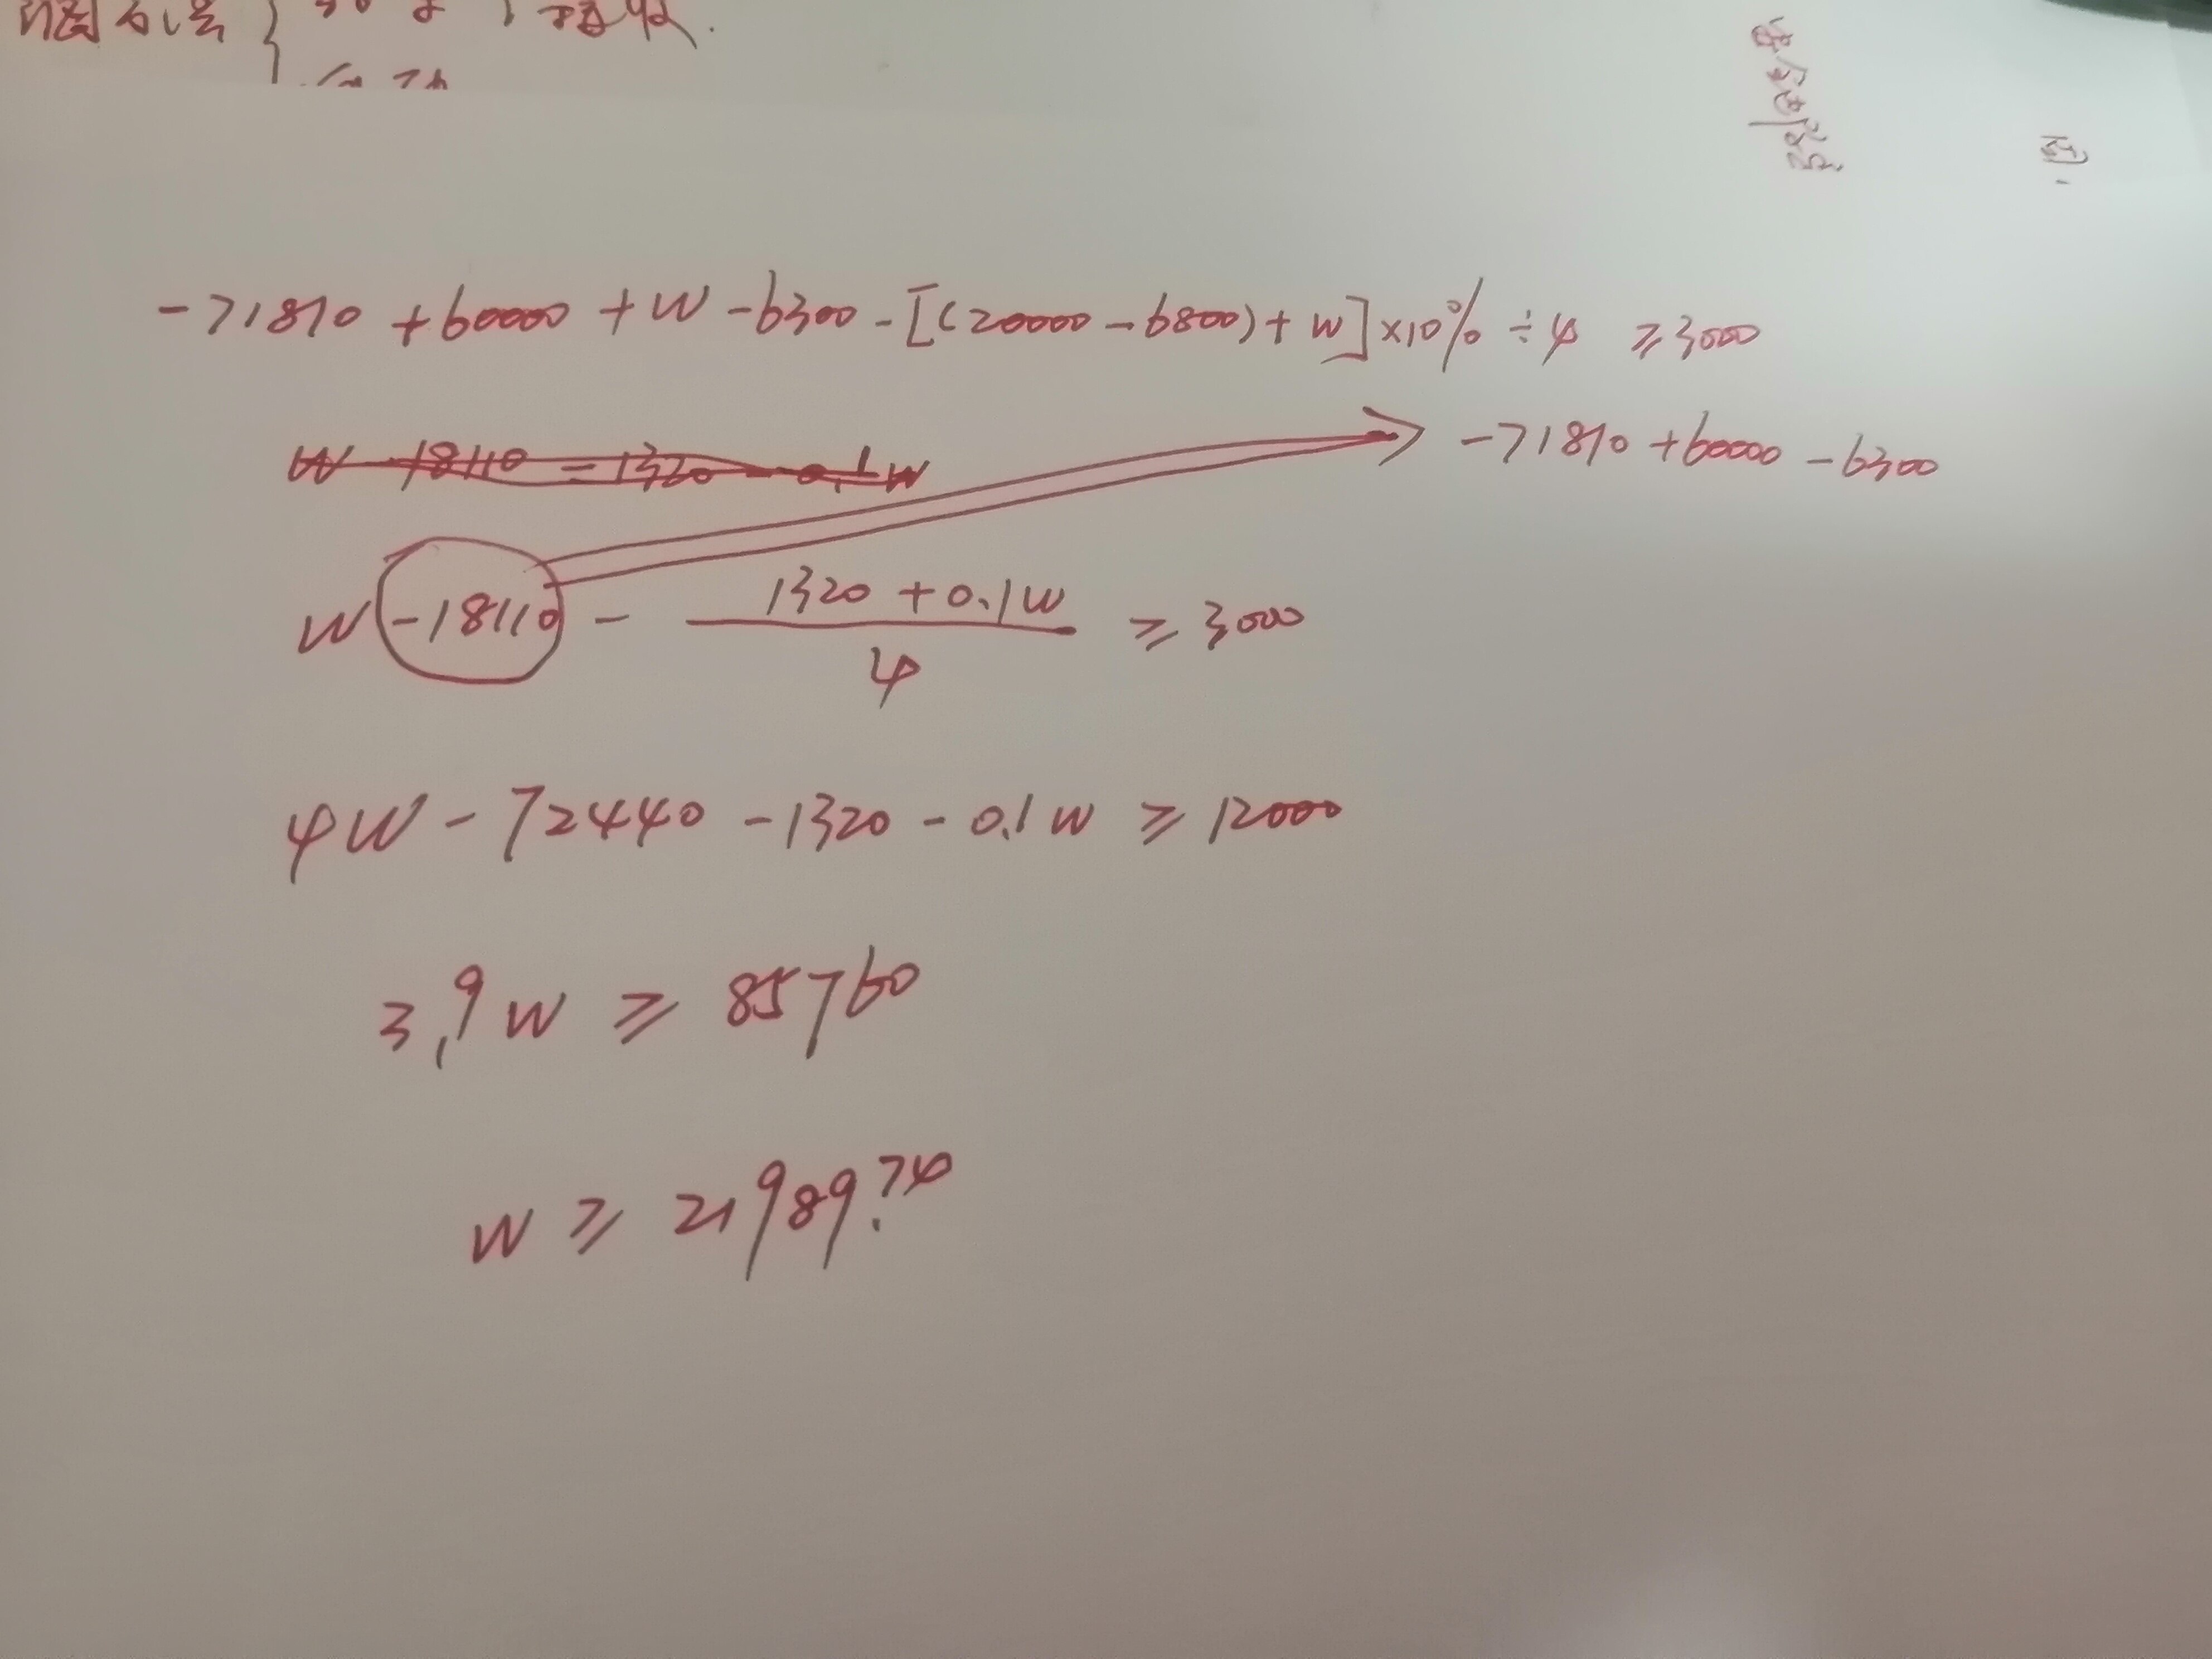 -71810 +60000 +W -6300 -[(20000-6800)+W]×10% ÷4 ≥3000
W -18110 = 1320 - 0.1W
-71810 +60000 -6300
W -18110 - (1320 +0.1W)/4 ≥ 3000
4W - 72440 -1320 - 0.1W ≥ 12000
3.9W ≥ 85760
W ≥ 21989.74